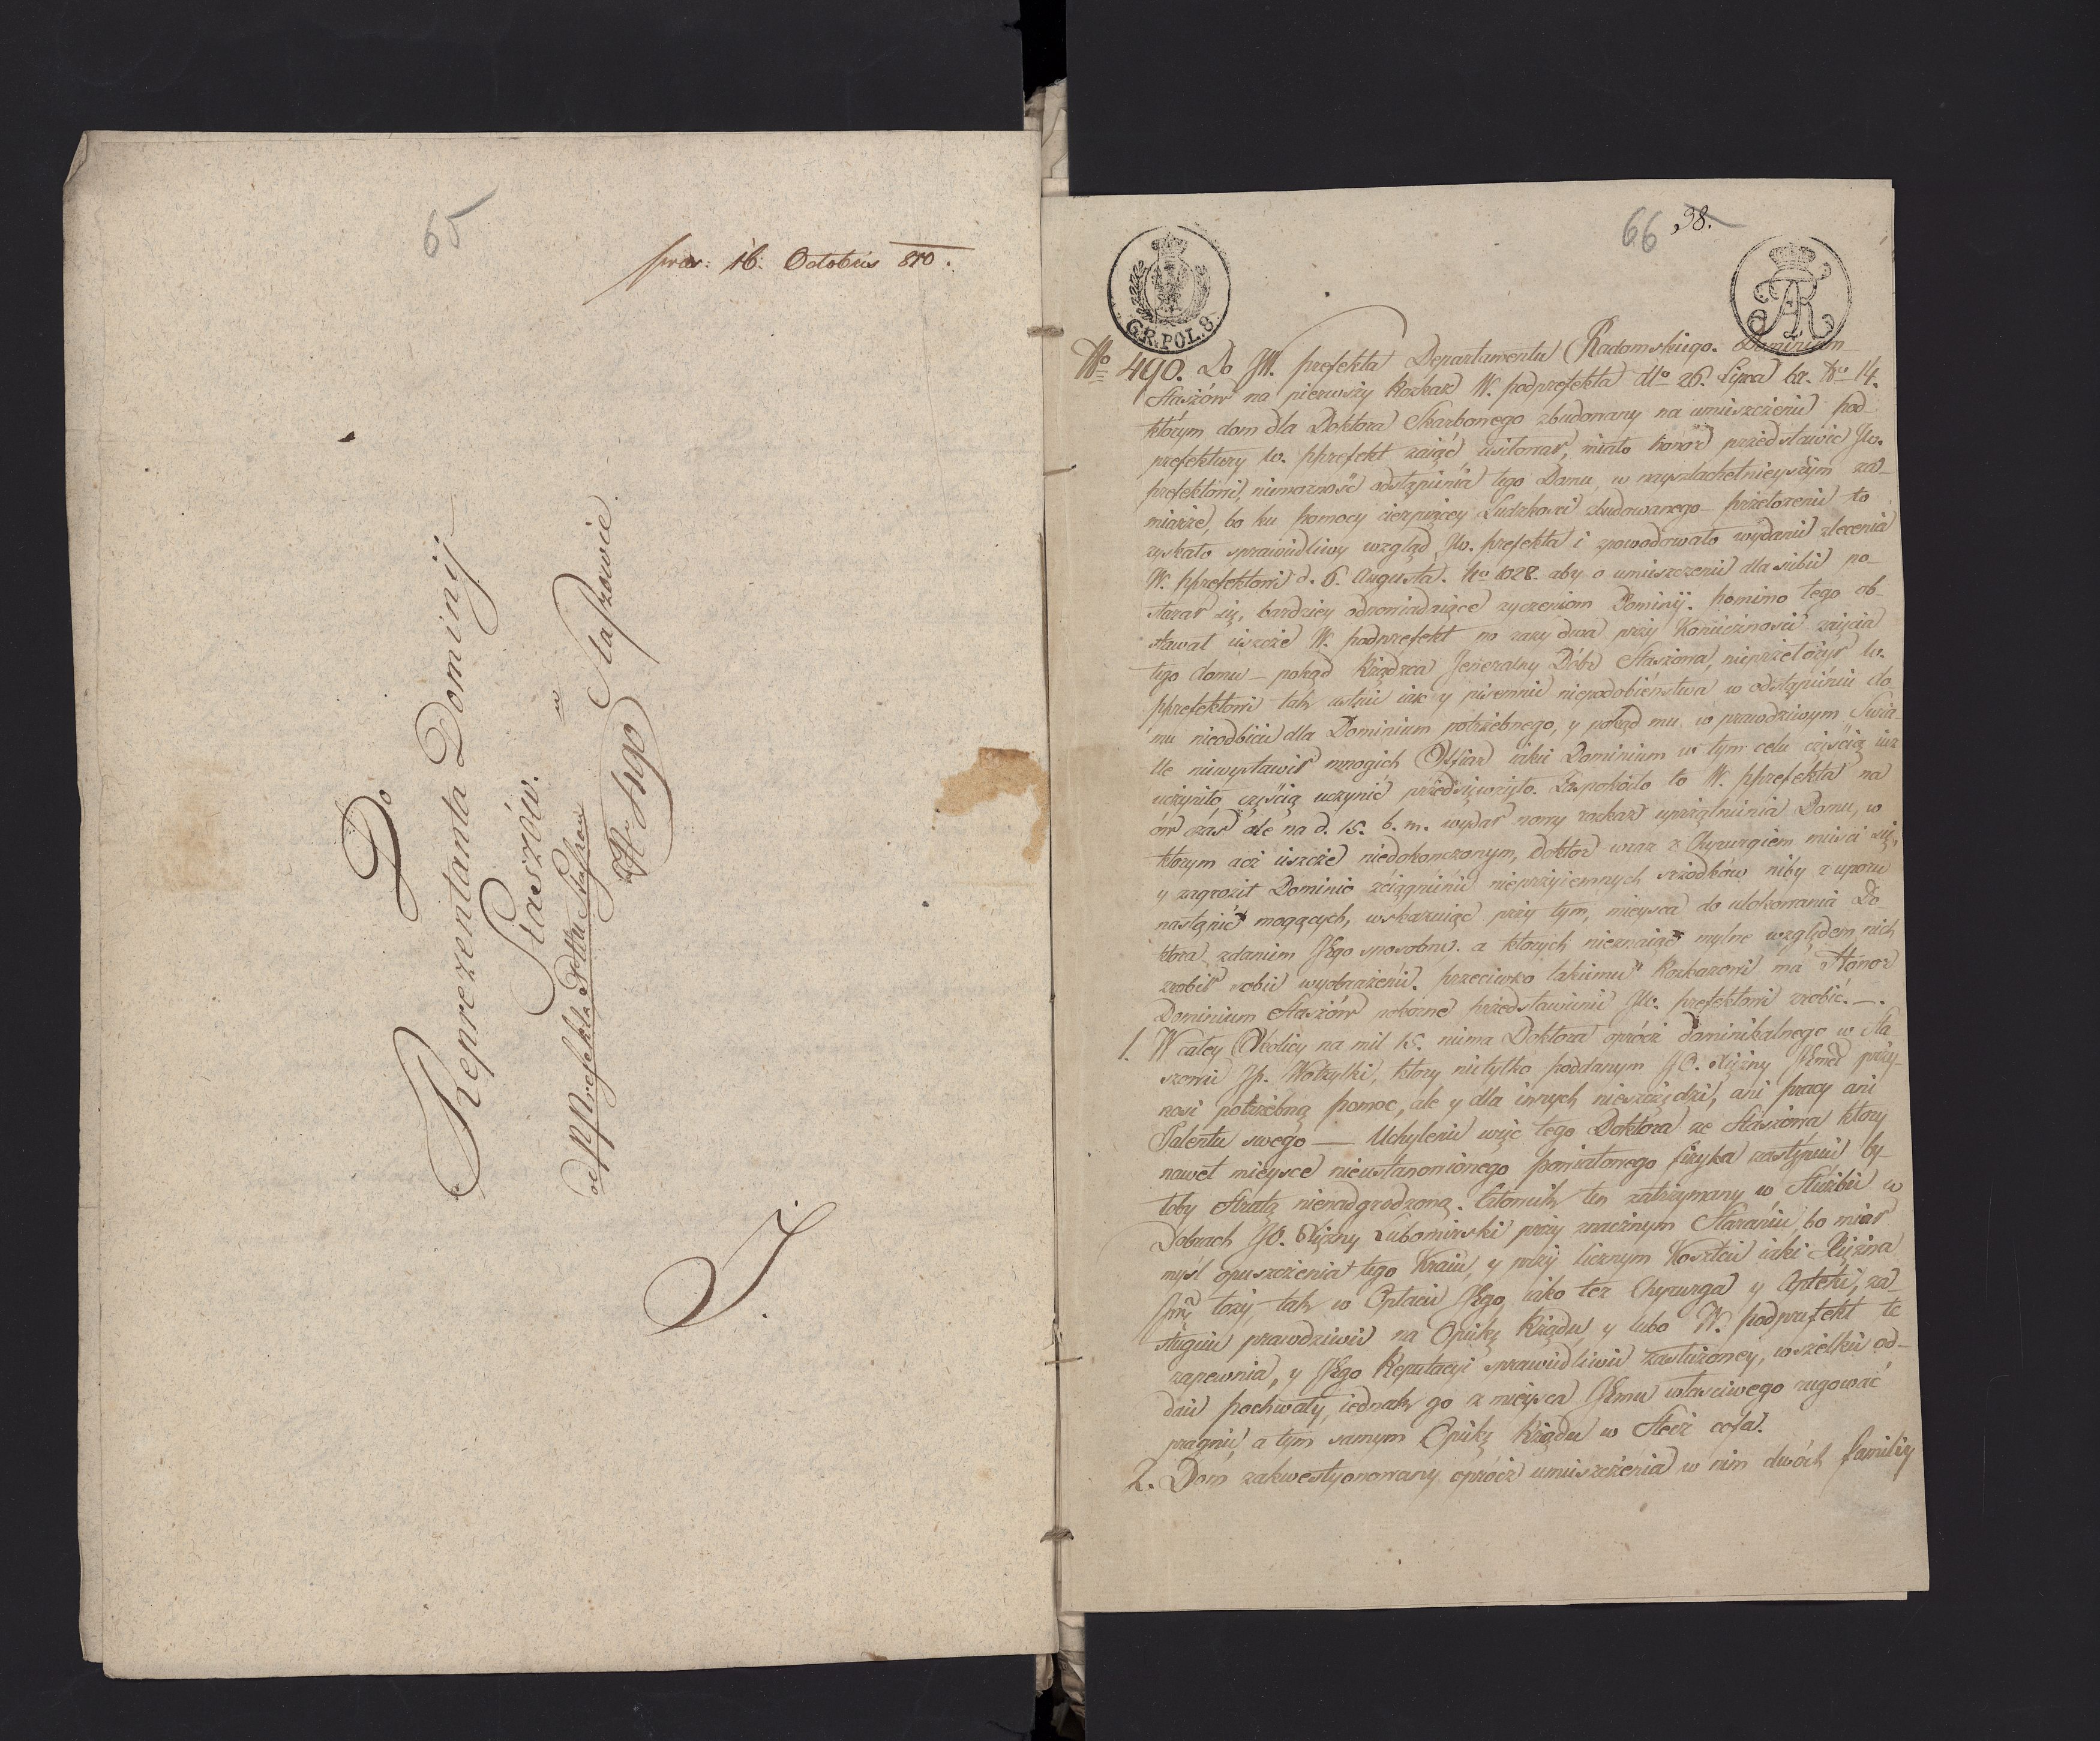 65
præs: 16. Octobris 810.
Do
Reprezentanta Dominij
Staszów.
od PPrefekta Pttu Staszow
w Staszowie
No 490
J.
66 38.
GR.POL.8.
AR
No 490. Do JW. prefekta Departamentu Radomskiego. Dominium
Staszów na pierwszy Rozkaz W. podprefekta dto 26. Lipca br. No 14.
którym dom dla Doktora Skarbowego zbudowany na umieszczenie pod
prefektury W. pprefekt zaiąć usiłował, miało honor przedstawić JW.
prefektowi, niemożność odstąpienia tego Domu, w nayszlachetnieyszym za-
miarze, bo ku pomocy cierpiącey Ludzkości zbudowanego – przełożenie to
zyskało sprawiedliwy wzgląd JW. prefekta i spowodowało wydanie zlecenia
W. pprefektowi d. 6. Augusta. No 1028. aby o umieszczenie dla siebie po-
starał się, bardziey odpowiadaiące życzeniom Dominij. pomimo tego ob-
stawał ieszcze W. podprefekt po razy dwa przy Konieczności zaięcia
tego domu – pokąd Rządzca Jeneralny Dóbr Staszowa, nieprzełożył W.
pprefektowi tak ustnie iak y pisemnie niepodobieństwa w odstąpieniu do-
mu nieodbicie dla Dominium potrzebnego, y pokąd mu w prawdziwym Świa-
tle niewystawił mnogich Ofiar iakie Dominium w tym celu częścią iuż
uczyniło, częścią uczynić przedsięwzięło. Zaspokoiło to W. pprefekta na
ów czas ale na d. 15. b. m. wydał nowy rozkaz uprzątnienia Domu, w
którym acz ieszcze niedokonczonym, Doktor wraz z Chyrurgiem mieści się,
y zagroził Dominio zciągnienie nieprzyiemnych srzodków niby z uporu
nastąpić mogących, wskazuiąc przy tym, mieysca do ulokowania Do-
ktora zdaniem JEgo sposobne. a których nieznaiąc mylne względem nich
zrobił sobie wyobrażenie. przeciwko takiemu Rozkazowi ma Honor
Dominium Staszów pokorne przedstawienie JW. prefektowi zrobić. —.
1. W całey Okolicy na mil 15. niema Doktora oprócz dominikalnego w Sta-
szowie JP. Wotrylki, który nietylko poddanym JO. Xiężny JEmci przy-
nosi potrzebną pomoc, ale y dla innych nieszczędzi, ani pracy ani
Talentu swego — Uchylenie więc tego Doktora ze Staszowa który
nawet mieysce nieustanowionego powiatowego fizyka zastępuie by-
łoby Stratą nienadgrodzoną. Człowiek ten zatrzymany w Służbie w
Dobrach JO. Xiężny Lubomirski przy znacznym Staraniu, bo miał
myśl opuszczenia tego Kraiu, y przy licznym Koszcie iaki Xiężna
Jmć łoży, tak w Opłacie JEgo iako też Chyrurga y Apteki, za-
sługuie prawdziwie na Opiekę Rządu y lubo W. podprefekt te
zapewnia, y JEgo Reputacyi sprawiedliwie zasłużoney, wszelkie od-
daie pochwały, iednak go z mieysca JEmu właściwego rugować
pragnie, a tym samym Opiekę Rządu w Stecz cofa.
2. Dom zakwestyonowany oprócz umieszczenia w nim dwóch familiy